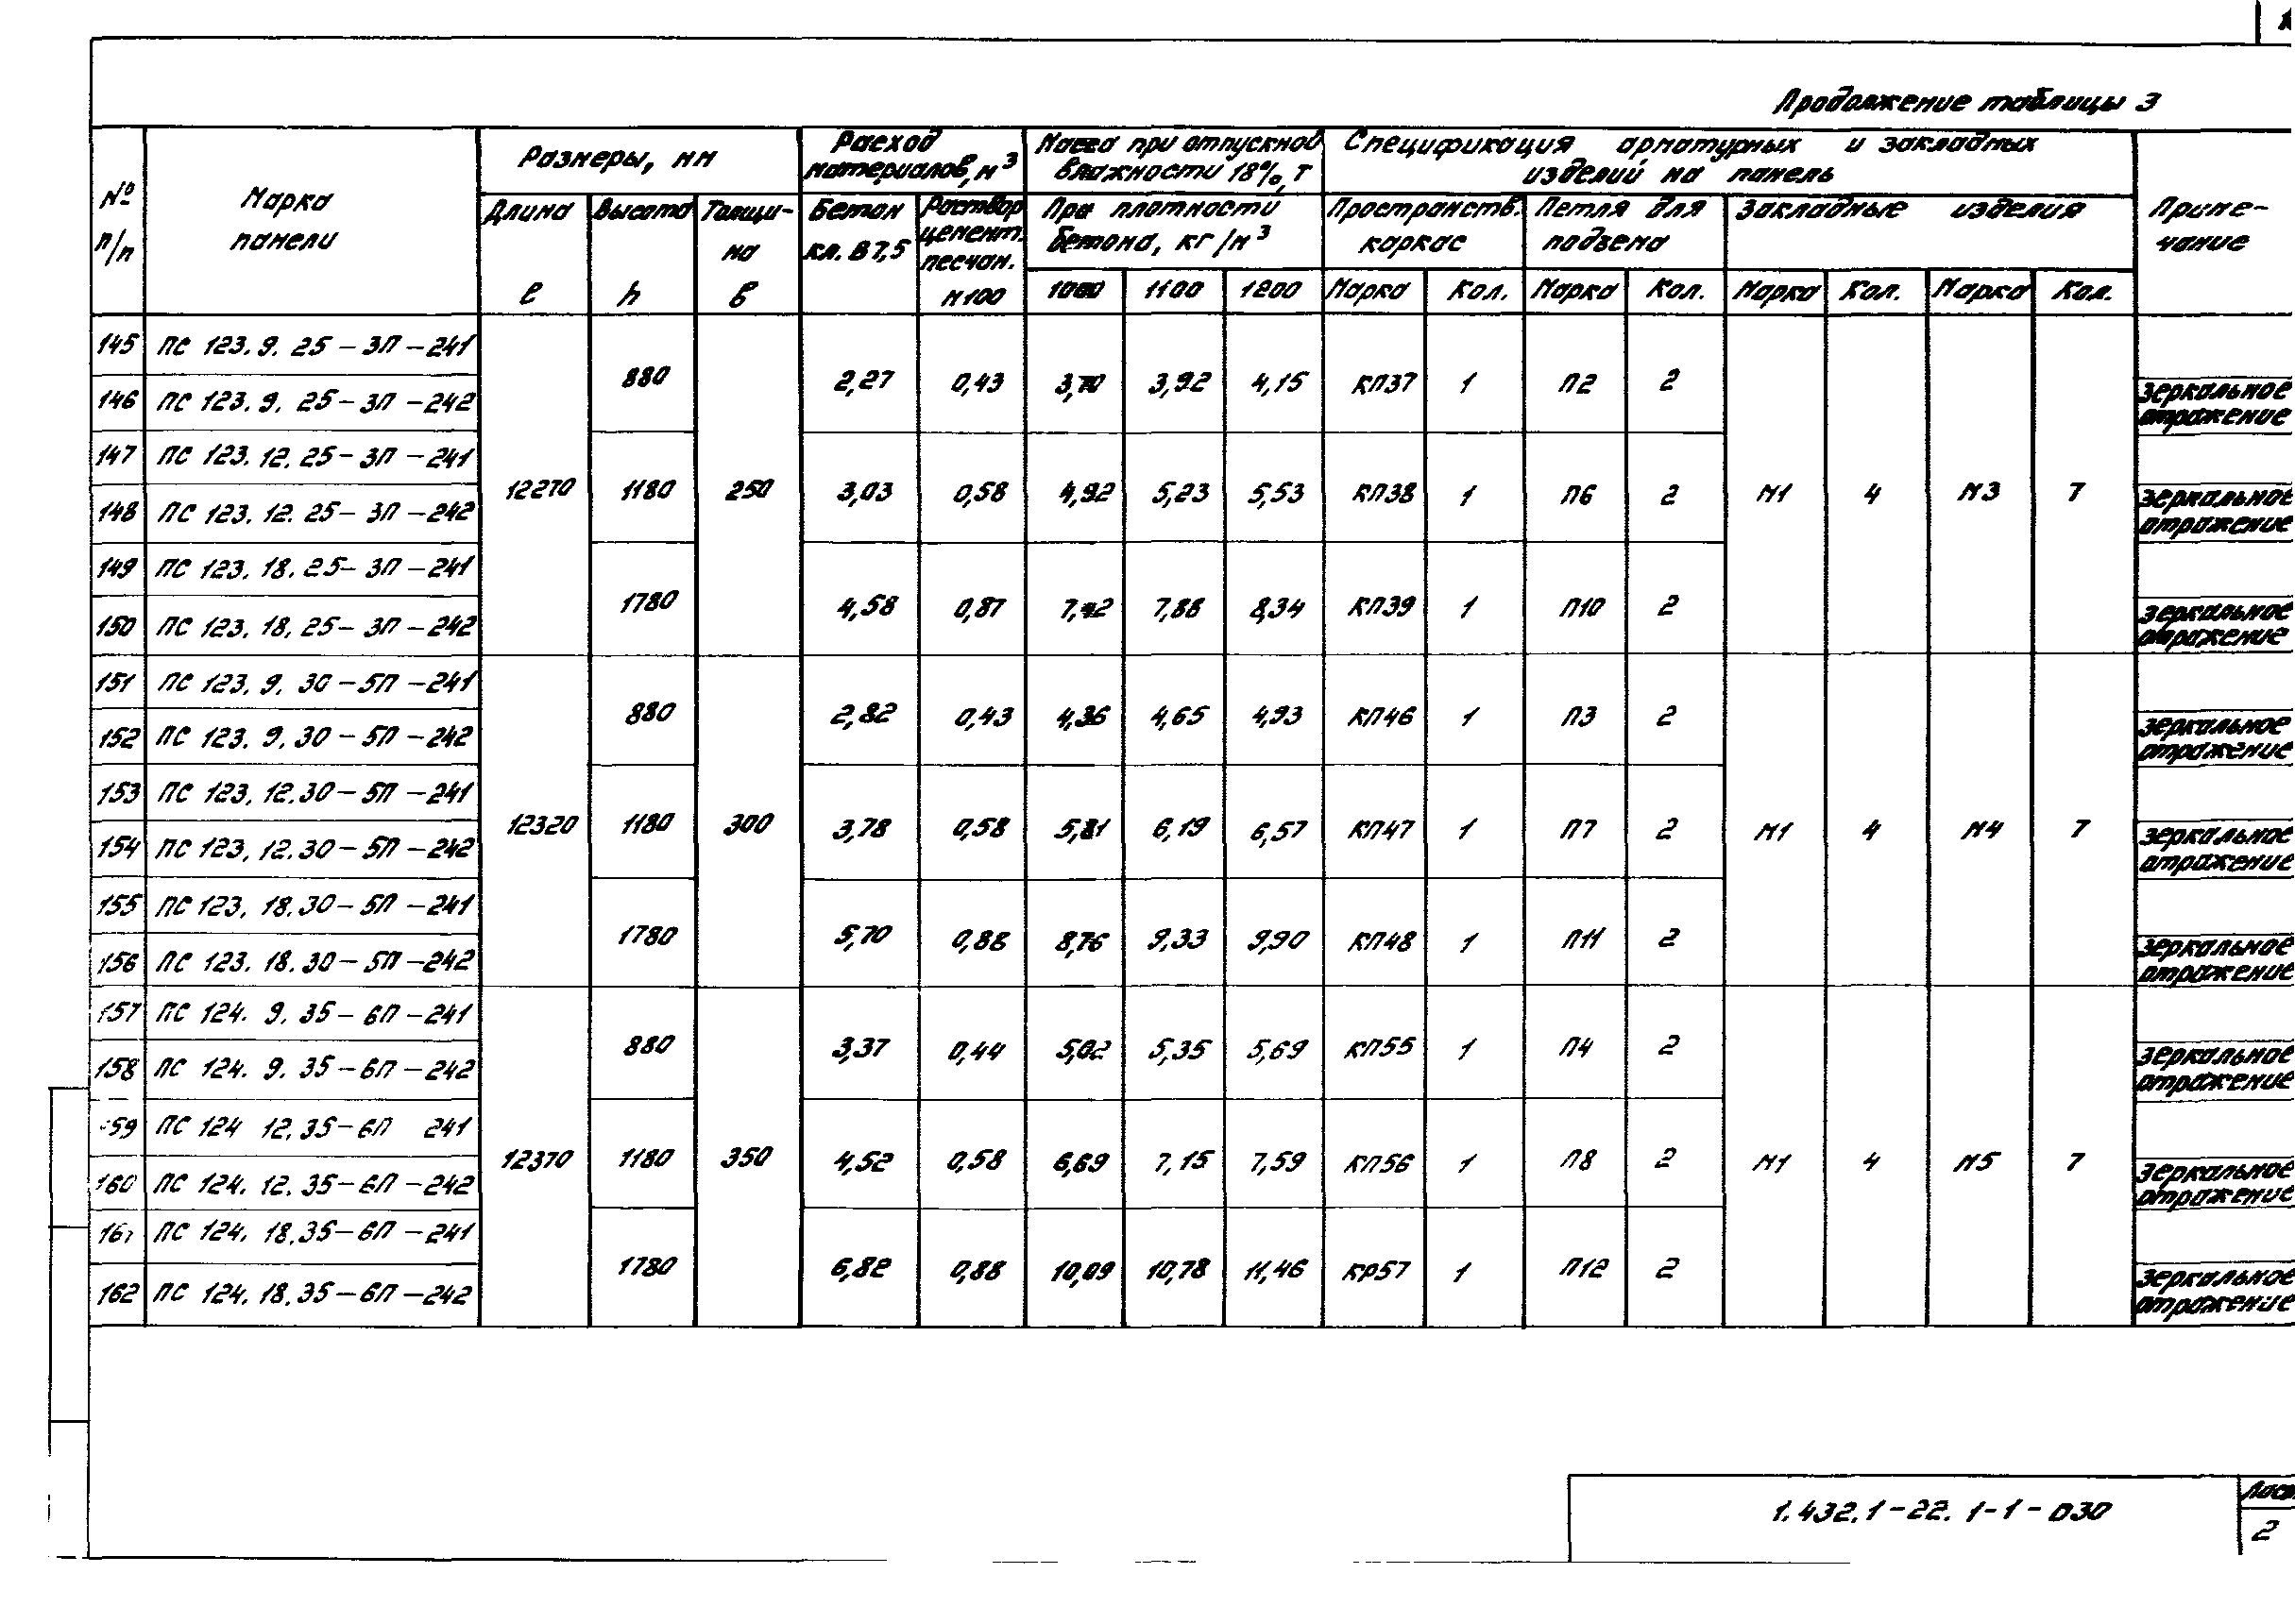 Продолжение таблицы 3
№ п/п
Марка панели
Размеры, мм
Длина l
Высота h
Толщина b
Расход материалов, м³
Бетон кл. В7,5
Раствор цемент. песчан. М100
Масса при отпускной влажности 18%, т
При плотности бетона, кг/м³
1000 1100 1200
Спецификация арматурных и закладных изделий на панель
Пространств. каркас
Петля для подъема
Закладные изделия
Марка Кол. Марка Кол. Марка Кол. Марка Кол.
Примечание
145 ПС 123.9.25-3П-241
880 2,27 0,43 3,70 3,92 4,15 КП37 1 П2 2
146 ПС 123.9.25-3П-242 зеркальное отражение
147 ПС 123.12.25-3П-241
12270 1180 250 3,03 0,58 4,92 5,23 5,53 КП38 1 П6 2 М1 4 М3 7
148 ПС 123.12.25-3П-242 зеркальное отражение
149 ПС 123.18.25-3П-241
1780 4,58 0,87 7,42 7,88 8,34 КП39 1 П10 2
150 ПС 123.18.25-3П-242 зеркальное отражение
151 ПС 123.9.30-5П-241
880 2,82 0,43 4,36 4,65 4,93 КП46 1 П3 2
152 ПС 123.9.30-5П-242 зеркальное отражение
153 ПС 123.12.30-5П-241
12320 1180 300 3,78 0,58 5,81 6,19 6,57 КП47 1 П7 2 М1 4 М4 7
154 ПС 123.12.30-5П-242 зеркальное отражение
155 ПС 123.18.30-5П-241
1780 5,70 0,88 8,76 9,33 9,90 КП48 1 П11 2
156 ПС 123.18.30-5П-242 зеркальное отражение
157 ПС 124.9.35-6П-241
880 3,37 0,44 5,02 5,35 5,69 КП55 1 П4 2
158 ПС 124.9.35-6П-242 зеркальное отражение
59 ПС 124 12.35-6П 241
12370 1180 350 4,52 0,58 6,69 7,15 7,59 КП56 1 П8 2 М1 4 М5 7
160 ПС 124.12.35-6П-242 зеркальное отражение
161 ПС 124.18.35-6П-241
1780 6,82 0,88 10,09 10,78 11,46 КР57 1 П12 2
162 ПС 124.18.35-6П-242 зеркальное отражение
1.432.1-22.1-1-030
2